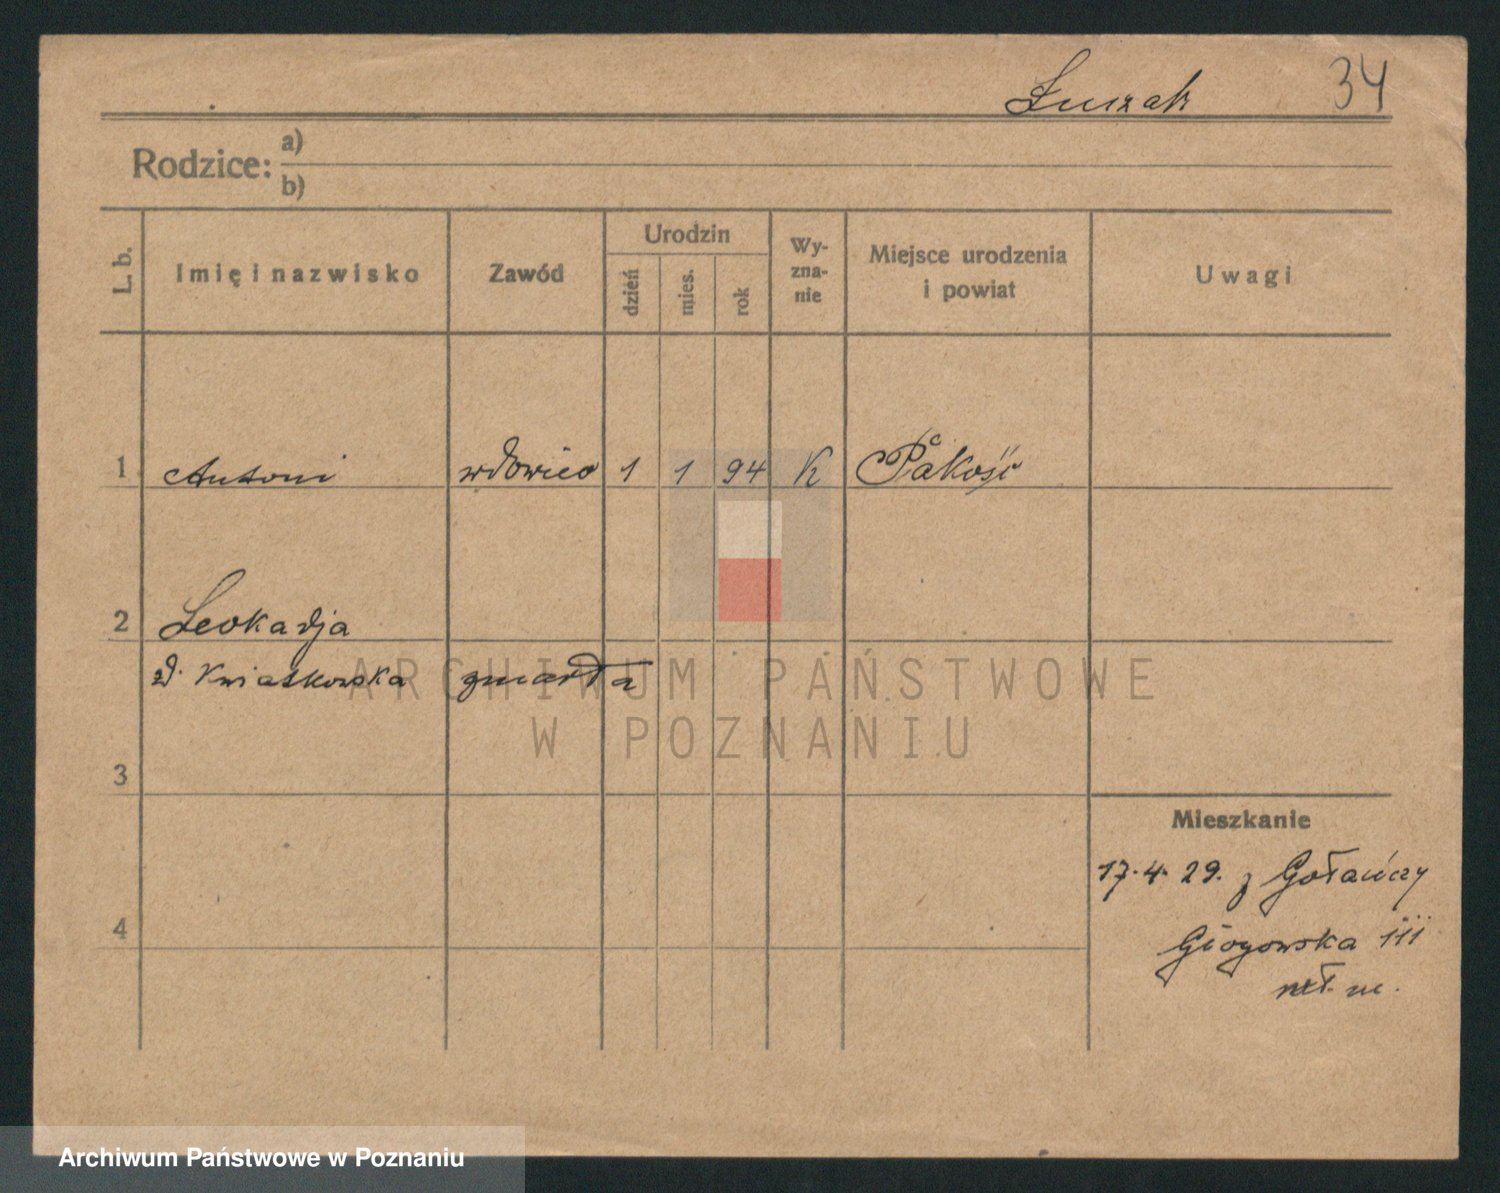 Łuczak 34
Rodzice: a)
b)
L. b. Imię i nazwisko Zawód Urodzin dzień mies. rok Wyznanie Miejsce urodzenia i powiat Uwagi
1 Antoni wdowiec 1 1 94 K Pakość
2 Leokadja
zd. Kwiatkowska zmarła
ARCHIWUM PAŃSTWOWE
W POZNANIU
3
Mieszkanie
17.4.29. z Gołańczy
4
Głogowska 111
Archiwum Państwowe w Poznaniu